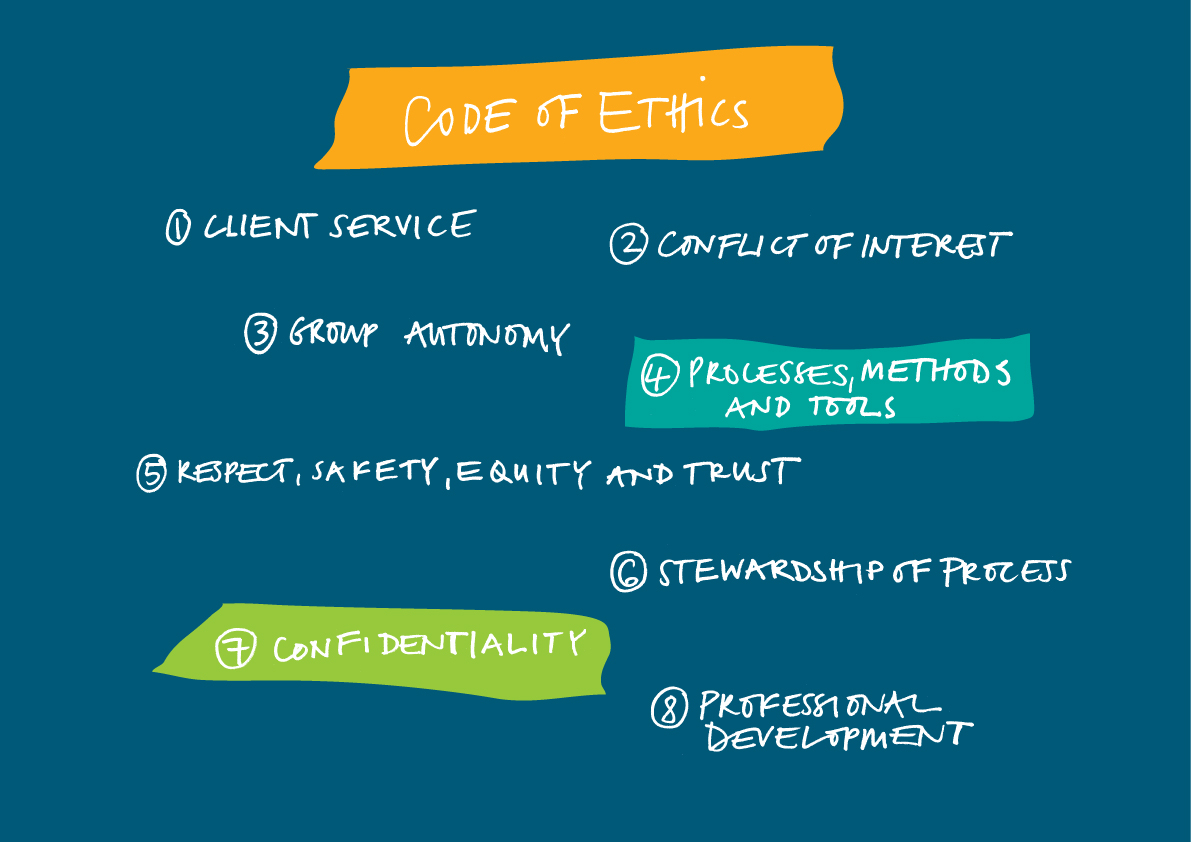 CODE OF ETHICS
① CLIENT SERVICE
② CONFLICT OF INTEREST
③ GROUP AUTONOMY
④ PROCESSES, METHODS
AND TOOLS
⑤ RESPECT, SAFETY, EQUITY AND TRUST
⑥ STEWARDSHIP OF PROCESS
⑦ CONFIDENTIALITY
⑧ PROFESSIONAL
DEVELOPMENT